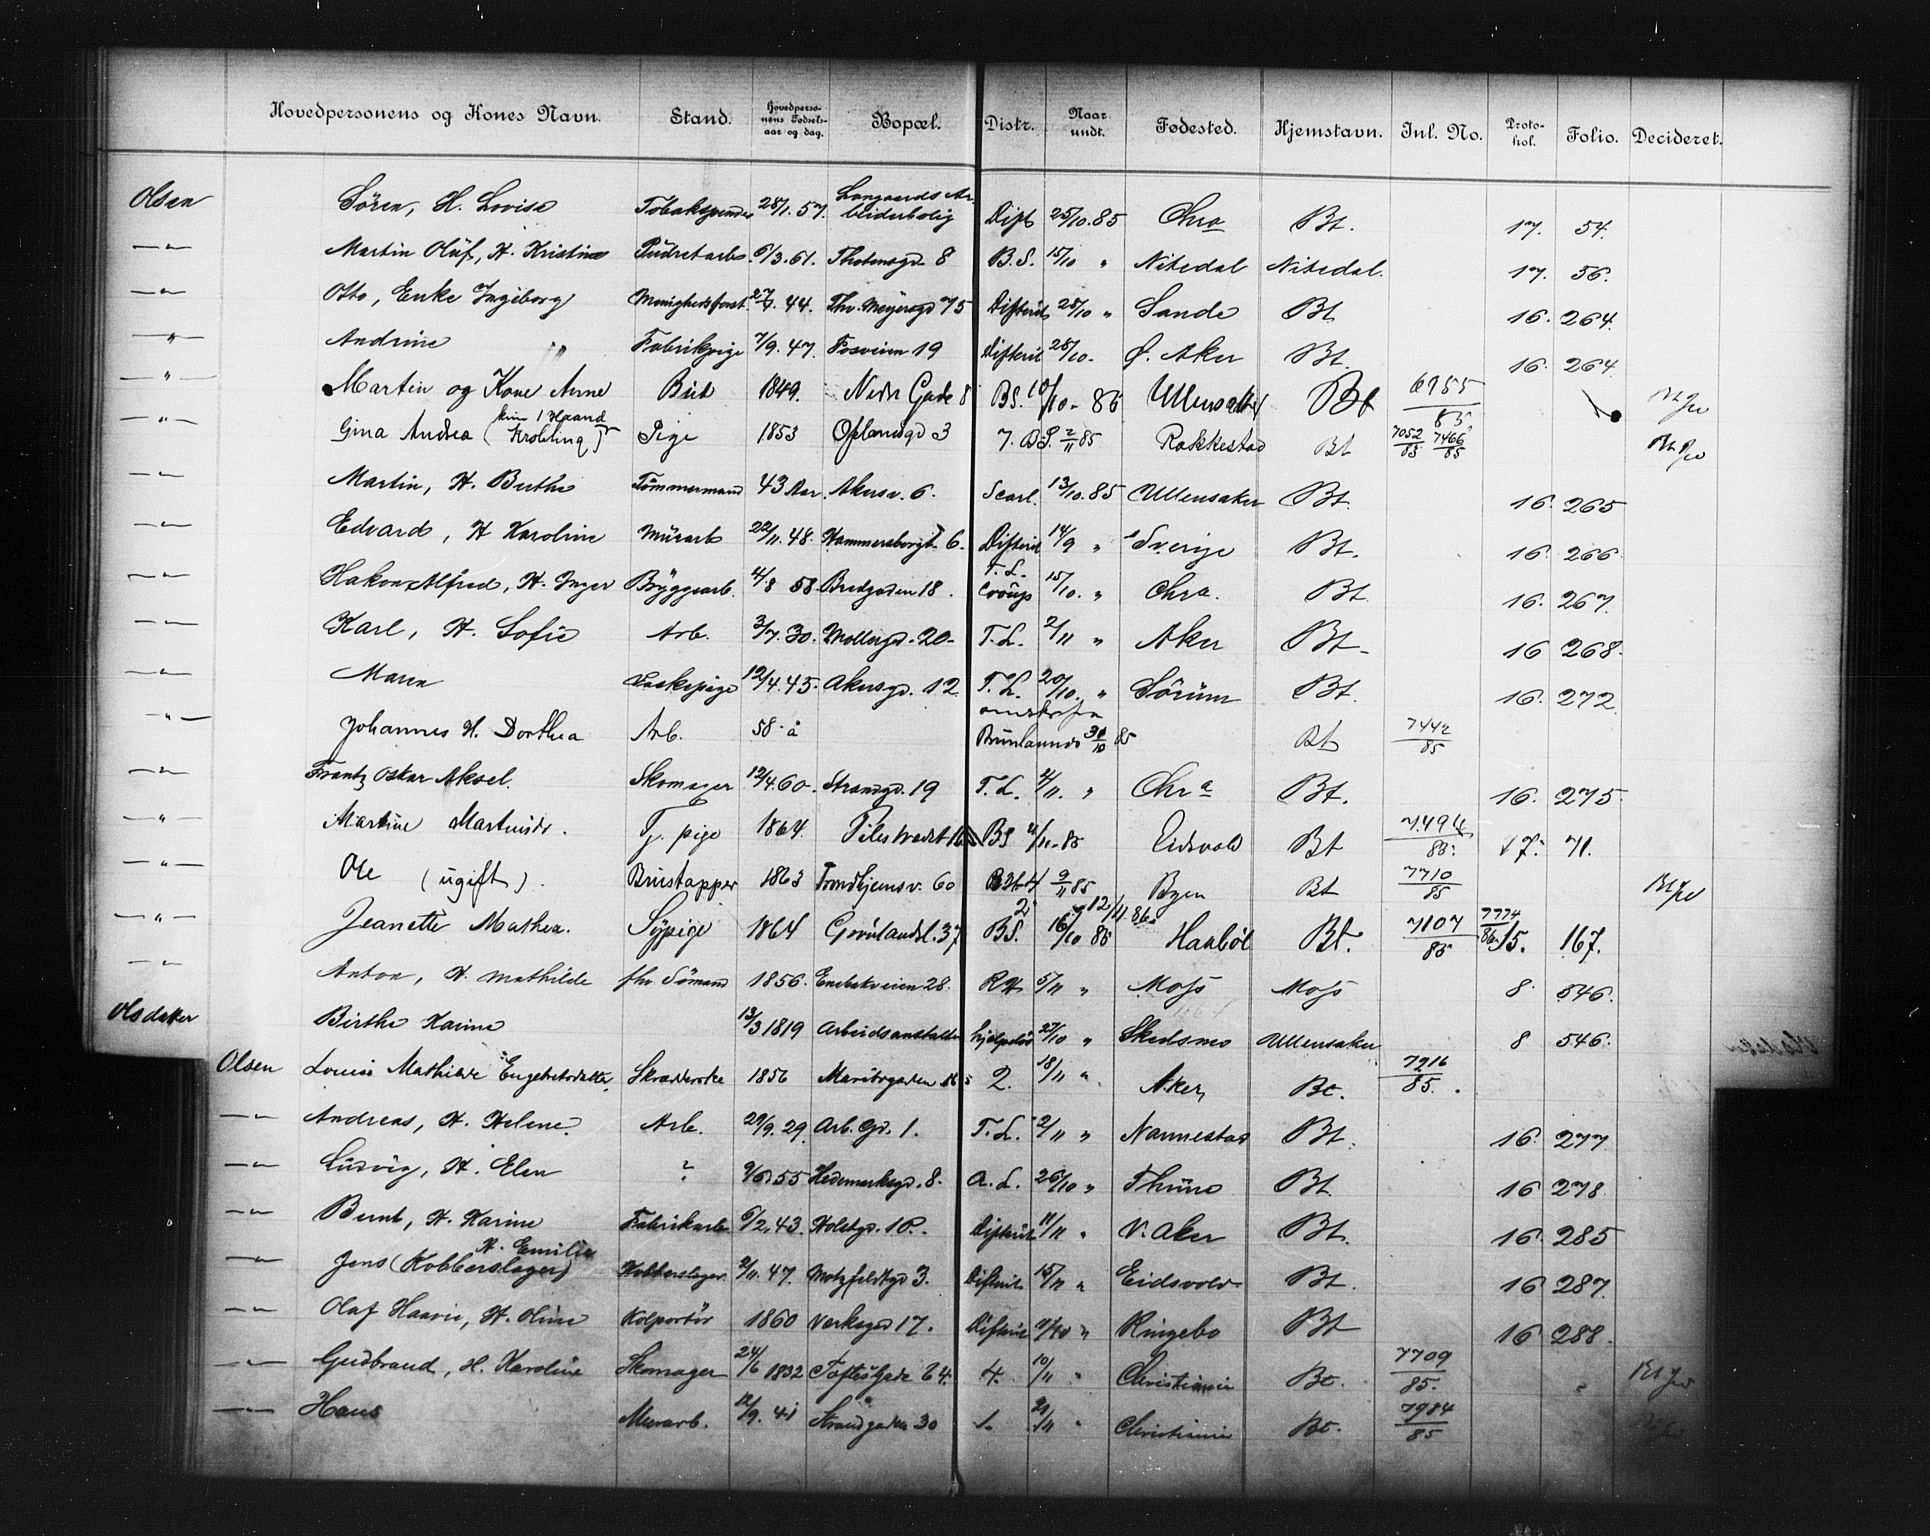 Hovedpersonens og Kones Navn. Stand. Hovedperso-nens Fødsels-aar og dag. Bopæl. Distr. Naar undt. Fødested. Hjemstavn. Jnl. No. Proto-kol. Folio. Decideret.
Olsen Sören, H. Lovise 28/1. 57. Langaards Ar-beiderbolig Dift 25/10. 85 Chra Bt. 17. 54.
—"— Martin Oluf, H. Kristine 6/3. 61. Thotensgd. 8 B.S. 15/10 " Nitedal Nitedal. 17. 56.
—"— Otto, Enke Ingeborg 44. Thv. Meyersgd 75 Difterit 28/10 " Sande Bt. 16. 264.
—"— Andrine " Fabrikpige 7/9. 47. Fosveien 19 Difterit 28/10. Ø. Aker Bt. 16. 264
—"— Martin og Kone Anne Bud 1849. Nedr Gade 8 BS. 10/10 - 86 Bt 6955/85
—"— Gina Andrea Pige 1853 Oplandsgd 3 7. BS. 2/11 85 Rakkestad Bt 7052/85 7466/85
—"— Martin, H. Berthe Tömmermand 43 Aar. Akersv. 6. Scarl. 13/10. 85 Ullensaker Bt. 16. 265
—"— Edvard, H Karoline Murarb 22/11. 48. Hammersborgt. 6. Difterit 14/9 " Sverige Bt. 16. 266
—"— Hakon Alfred, H. Inger Byggearb. 4/8 58. Bredgaden 18. T.L. Croup 15/10. " Chra. Bt. 16. 267.
—"— Karl, H. Sofie Arb. 3/7. 30. Mollergd. 20. T.L. 2/11 " Aker Bt. 16 268.
—"— Maren 12/4. 45. Akersgd. 12 T.L. 20/10. " Sörum Bt. 16. 272.
—"— Johannes H. Dorthea Arb. 58 å 85 Bt 7442/85
—"— Frantz Oskar Aksel. Skomager 12/4. 60. Strandgd. 19 T.L. 2/11. " Chra Bt. 16. 275.
—"— Martine Martinsdr. Tj. pige 1864. Pilestrædet BS Eidsvold Bt 7494/85. 17. 71.
—"— Ole (ugift). Brustapper 1863 Trondhjemsv. 60 9/11 85 Byen Bt 7710/85
—"— Jeanette Mathea. Sypige 1864 Grönlandsl. 37 BS. 2 16/10 85 12/11 86. Haabøl Bt. 7107/85 7774/86 15. 167.
—"— Anton, H. Mathilde fhv Sömand 1856. Enebakveien 28. RH 5/11 " Moss Moss 8. 546.
Olsdatter Birthe Karine 13/3 1819 Arbeidsanstalten 27/10 " Skedsmo Ullensaker 8 546.
Olsen Louise Mathilde Engebretsdatter. Skrædderske 1856 Maribogaden 2. 18/11 " Aker Bt. 7216/85.
—"— Andreas, H. Helene. Arb. 29/9. 29. Arb. Gd. 1. T.L. 2/11 " Nannestad Bt. 16. 277.
—"— Ludvig, H. Elen ? 55 Hedemarksgd. 8. A.L. 26/10 " Thune Bt. 16 278.
—"— Bernt, H. Karine Fabrikarb. 6/2. 43. Holstgd. 10. Difterit 11/11 " V. Aker Bt. 16. 285
—"— Jens (Kobberslager) H. Emilie Kobberslager 2/11. 47. Motzfeldtgd 3. Difterit 15/11 " Eidsvold Bt. 16 287.
—"— Olaf Haavie, H. Oline Kolportör 1860 Verksgd 17. Difterit " Ringebo Bt 16 288.
—"— Gudbrand, H. Karoline Skomager 24/6 1832 Toftesgade 64. 4. 10/11 " Christiania Bt. 7709/85.
—"— Hans Murarb. 12/9. 41 Strandgaden 30 " Christiania Bt. 7984/85